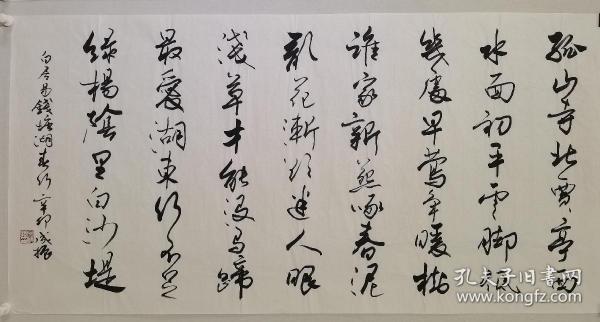 孤山寺北賈亭西
水面初平雲脚低
幾處早鶯争暖樹
誰家新燕啄春泥
亂花漸欲迷人眼
淺草才能没馬蹄
最愛湖東行不足
綠楊陰里白沙堤
白居易錢塘湖春行 辛卯 成振
孔夫子旧書網
www.kongfz.com